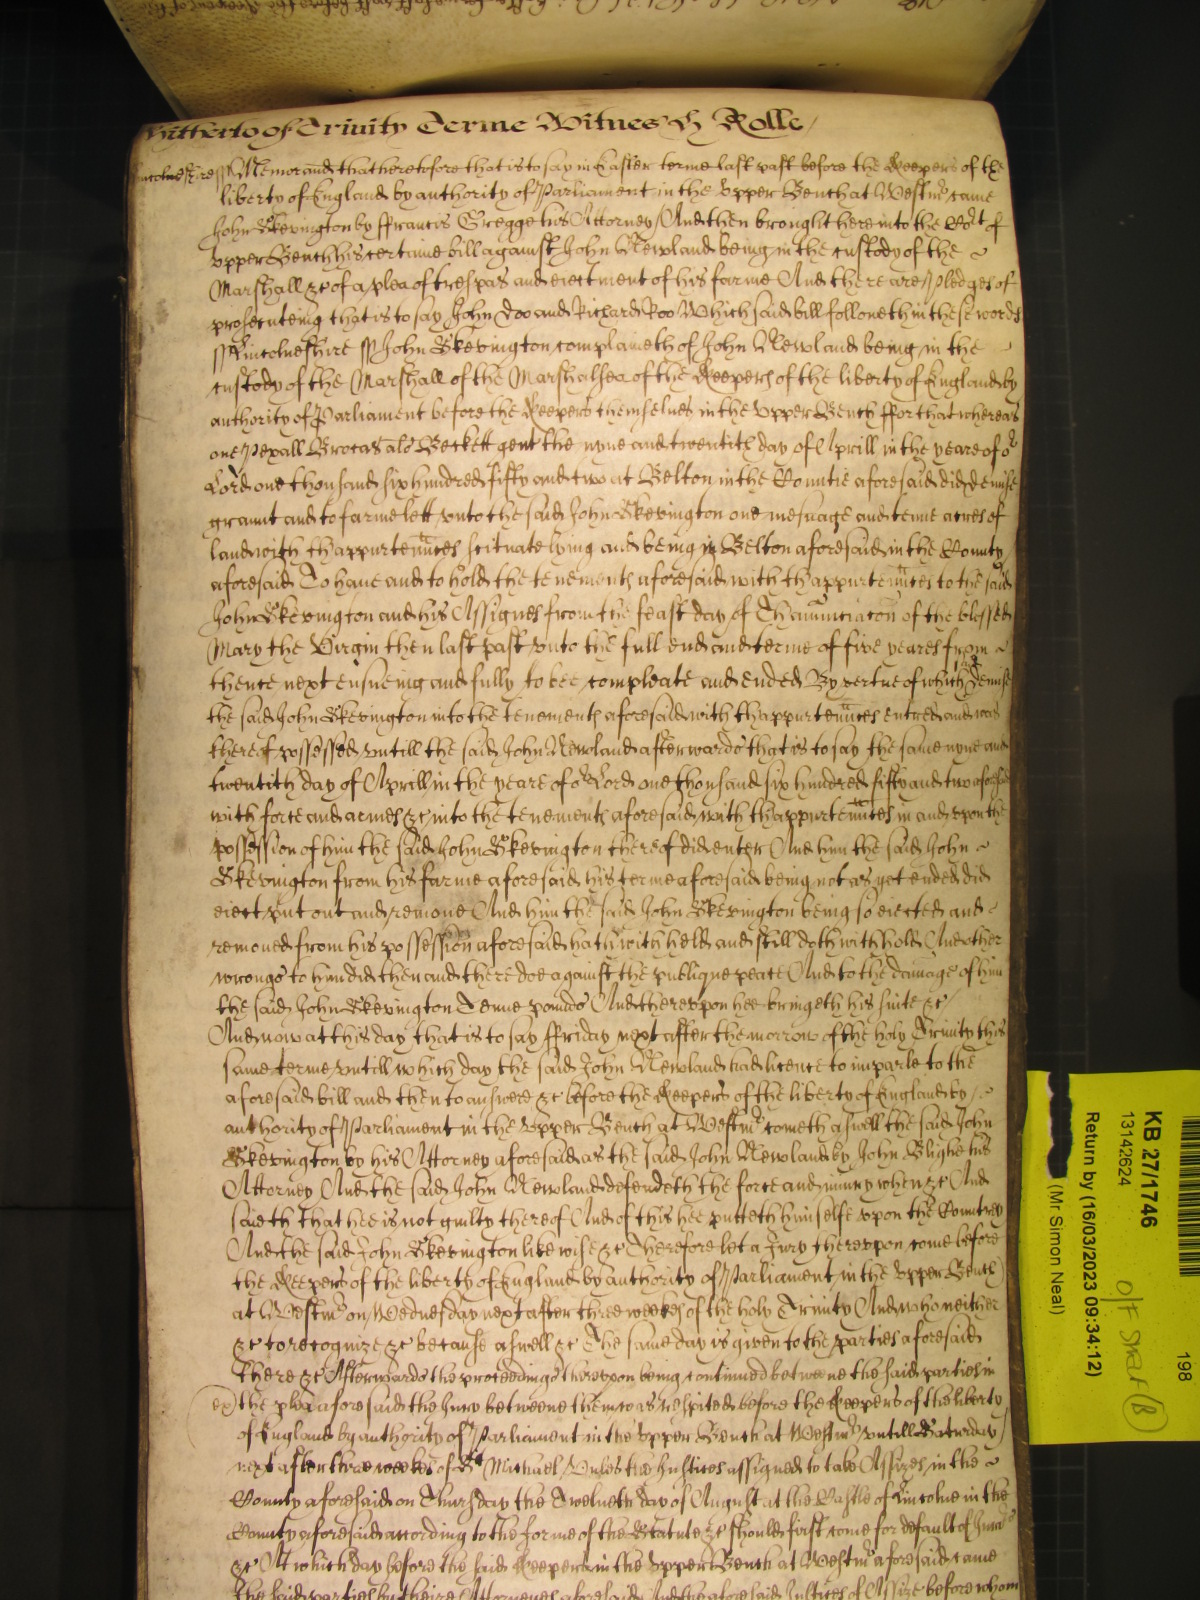 Hitterto of Trinity Terme Witnes th Rolle
Lincolneshire ss Memorand that heretofore that is to say in Easter terme last past before the Keepers of the
liberty of England by authority of Parliament in the Upper Bench at Westmr came
John Skevington by ffrancis Gregge his Attorney And then brought here into the Cort of
Upper Bench his certaine bill against John Newland being in the custody of the
Marshall &c of a plea of trespas and eiectment of his farme And there are Pledges of
prosecuteing that is to say John Doo and Richard Roo Which said bill followeth in these words
ss Lincolneshire ss John Skevington complaineth of John Newland being in the
custody of the Marshall of the Marshalsea of the Keepers of the liberty of England by
authority of Parliament before the Keepers themselues in the Upper Bench ffor that whereas
one Pexall Brocas als Beckett gent the nyne and twentith day of Aprill in the yeare of or
Lord one thousand six hundred fifty and two at Belton in the Countie aforesaid did demise
graunt and to farme lett vnto the said John Skevington one mesuage and tenne acres of
land with thappurtennces scituate lying and being in Belton aforesaid in the County
aforesaid To haue and to hold the tenements aforesaid with thappurtennces to the said
John Skevington and his Assignes from the feast day of Thanunciacon of the blessed
Mary the Virgin then last past vnto the full end and terme of five yeares from
thence next ensueing and fully to bee compleate and ended By vertue of which demise
the said John Skevington into the tenements aforesaid with thappurtennces entred and was
thereof possessed vntill the said John Newland afterwards that is to say the same nyne and
twentith day of Aprill in the yeare of or Lord one thousand six hundred fifty and two aforesaid
with force and armes &c into the tenements aforesaid with thappurtennces in and vpon the
possession of him the said John Skevington thereof did enter And him the said John
Skevington from his farme aforesaid his terme aforesaid being not as yet ended did
eiect put out and remoue And him the said John Skevington being so eiected and
remoued from his possession aforesaid hath with held and still doth with hold And other
wrongs to him did then and there doe against the publique peace And to the damage of him
the said John Skevington Tenne pounds And therevpon hee bringeth his suite &c
And now at this day that is to say ffriday next after the morrow of the holy Trinity this
same terme vntill which day the said John Newland had licence to imparle to the
aforesaid bill and then to answere &c before the Keepers of the liberty of England by
authority of Parliament in the Upper Bench at Westmr cometh aswell the said John
Skevington by his Attorney aforesaid as the said John Newland by John Blighe his
Attorney And the said John Newland defendeth the force and iniury when &c And
saieth that hee is not guilty thereof And of this hee putteth himselfe vpon the Countrey
And the said John Skevington likewise &c Therefore let a Jury therevpon come before
the Keepers of the liberty of England by authority of Parliament in the Upper Bench
at Westmr on Wednesday next after three weekes of the holy Trinity And who neither
&c to recognize &c because aswell &c The same day is given to the parties aforesaid
there &c Afterwards the proceedings therevpon being continued betweene the said parties in
the plea aforesaid the Jury betweene them was respited before the Keepers of the liberty
of England by authority of Parliament in the Upper Bench at Westmr vntill Saturday
next after three weekes of St Michael Vnles the Justices assigned to take Assizes in the
County aforesaid on Thursday the Twelueth day of August at the Castle of Lincolne in the
County aforesaid according to the forme of the Statute &c should first come for default of Jurors
&c At which day before the said Keepers in the Upper Bench at Westmr aforesaid came
the said parties by theire Attorneyes aforesaid And the aforesaid Justices of Assize before whom
KB 27/1746
13142624
198
O/F
Return by (16/03/2023 09:34:12)
(Mr Simon Neal)